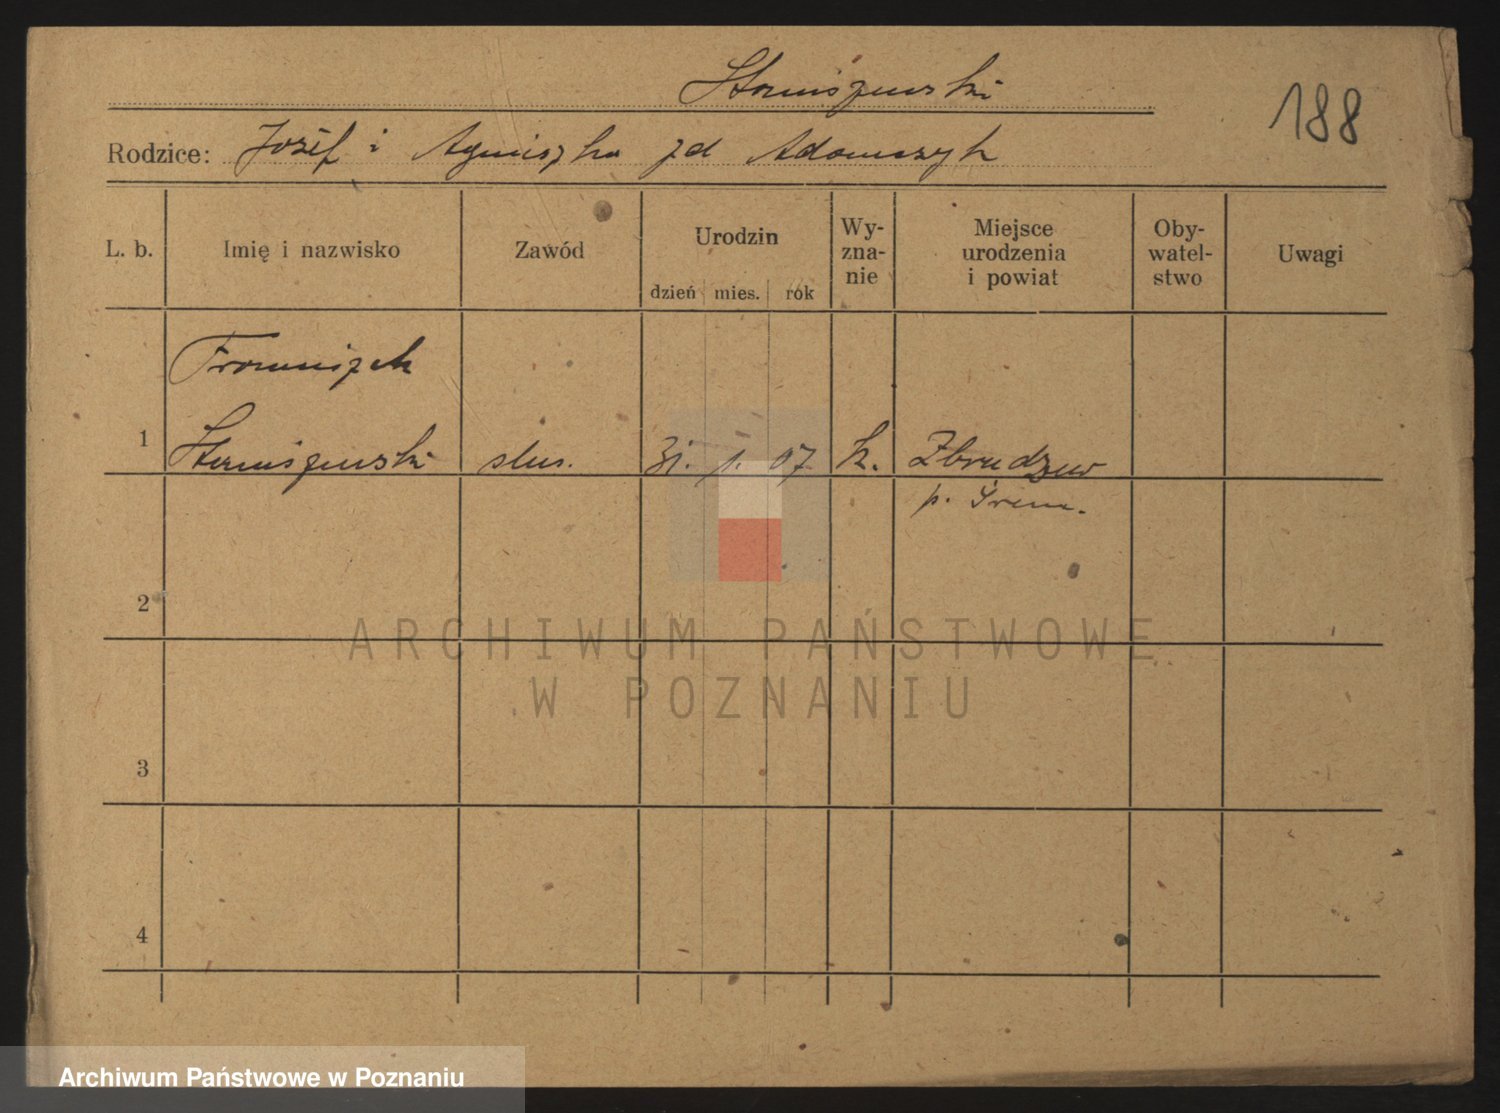 Staniszewski
188
Rodzice: Józef i Agnieszka zd Adamczyk
L. b.
Imię i nazwisko
Zawód
Urodzin
dzień mies. rok
Wy-
zna-
nie
Miejsce
urodzenia
i powiat
Oby-
watel-
stwo
Uwagi
Franciszek
1 Staniszewski ślus. 31. 1. 07 k. Zbrudzewo
p. Śrem.
2
3
4
ARCHIWUM PAŃSTWOWE
W POZNANIU
Archiwum Państwowe w Poznaniu